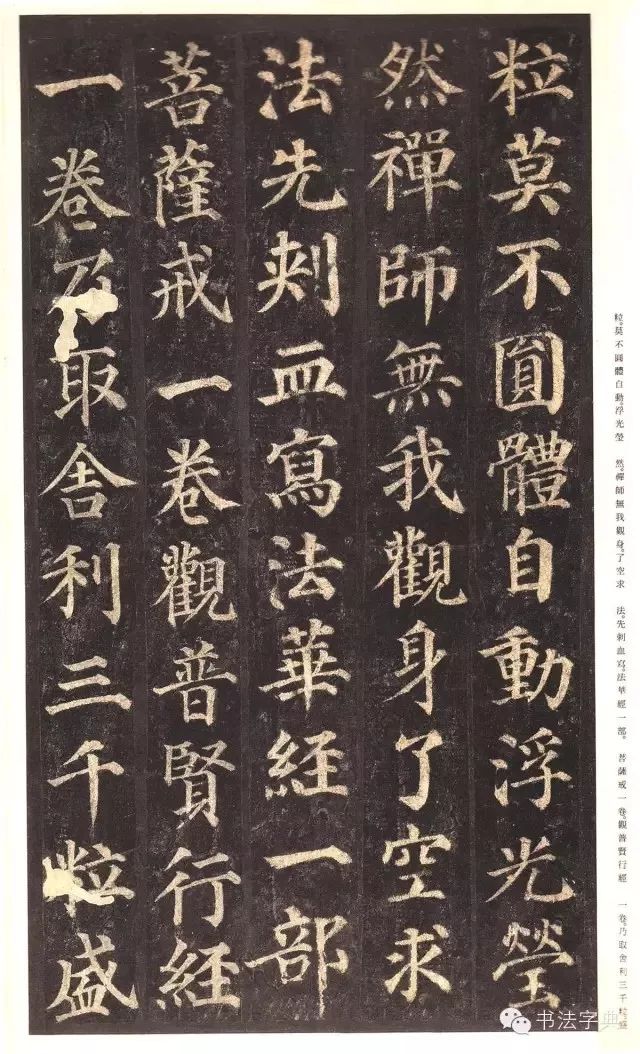 粒莫不圓體自動浮光瑩
然禪師無我觀身了空求
法先刺血寫法華經一部
菩薩戒一卷觀普賢行經
一卷乃取舍利三千粒盛
粒。莫不圓體自動。浮光瑩　然。禪師無我觀身。了空求　法。先刺血寫。法華經一部。　菩薩戒一卷。觀普賢行經　一卷。乃取舍利三千粒。盛
书法字典